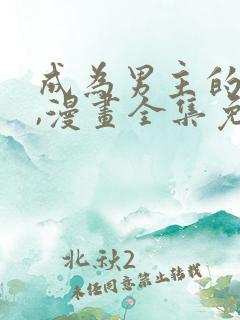 成為男主的
,漫畫全集免
北秋2
未经同意禁止转载